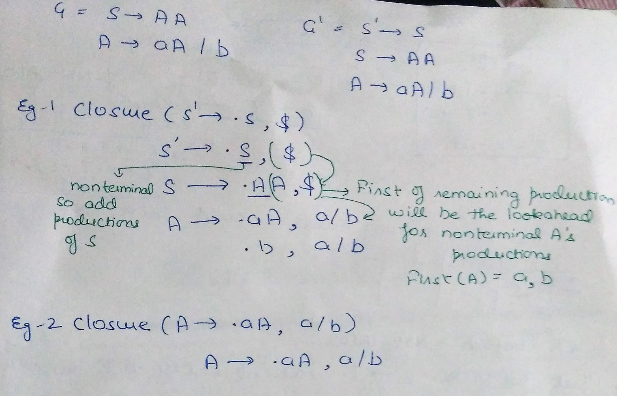 G = S → AA
A → aA / b
G' = S' → S
S → AA
A → aA/b
Eg-1 Closure (S' → .S, $)
S' → .S, ($)
nonterminal so add productions of S
S → .A(A, $)
First of remaining production
will be the lookahead
for nonterminal A's
productions
First(A) = a, b
A → .aA, a/b
.b, a/b
Eg-2 Closure (A → .aA, a/b)
A → .aA, a/b